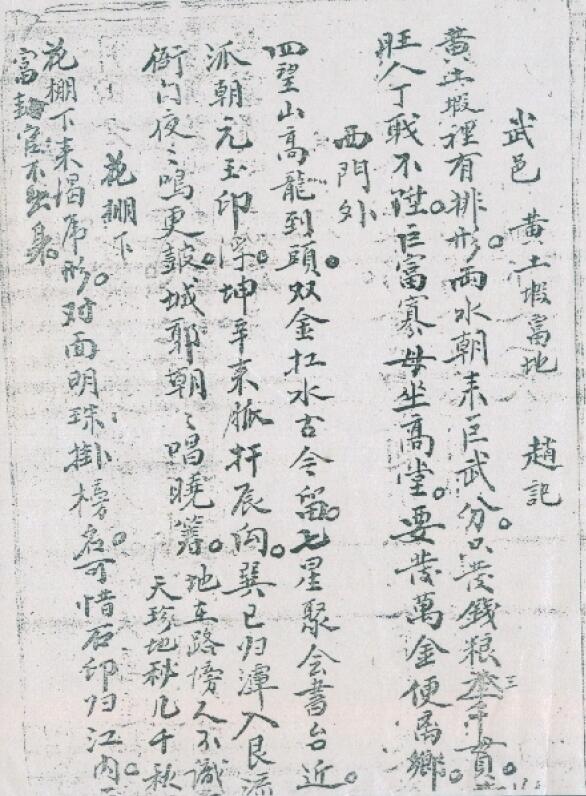 武邑 黄土塅富地 趙記
黄土塅裡有排形。两水朝来巨武分。只発錢粮三千貫
旺人丁戝不陞。巨富寡母坐高堂。要発萬金便离鄉。
西門外
四望山高龍到頭。双金扛水古今留。七星聚会書台近。
派朝元玉印浮。坤辛来脈扦辰向。巽巳归潭入艮流
衙门夜〻鳴更鼓。城郭朝〻唱曉籌。地在路傍人不識
天珍地秒几千秋
花棚下
花棚下来揭席形。对面明珠掛榜名。可惜石印归江内。
富 官不 身。